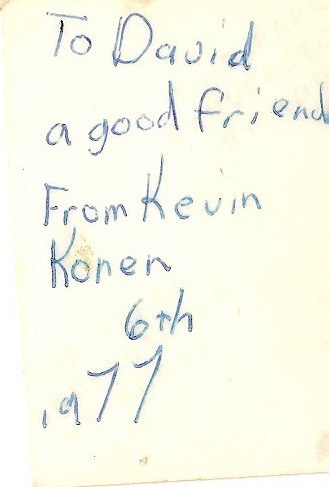 To David
a good friend
From Kevin
Konen
6th
1977